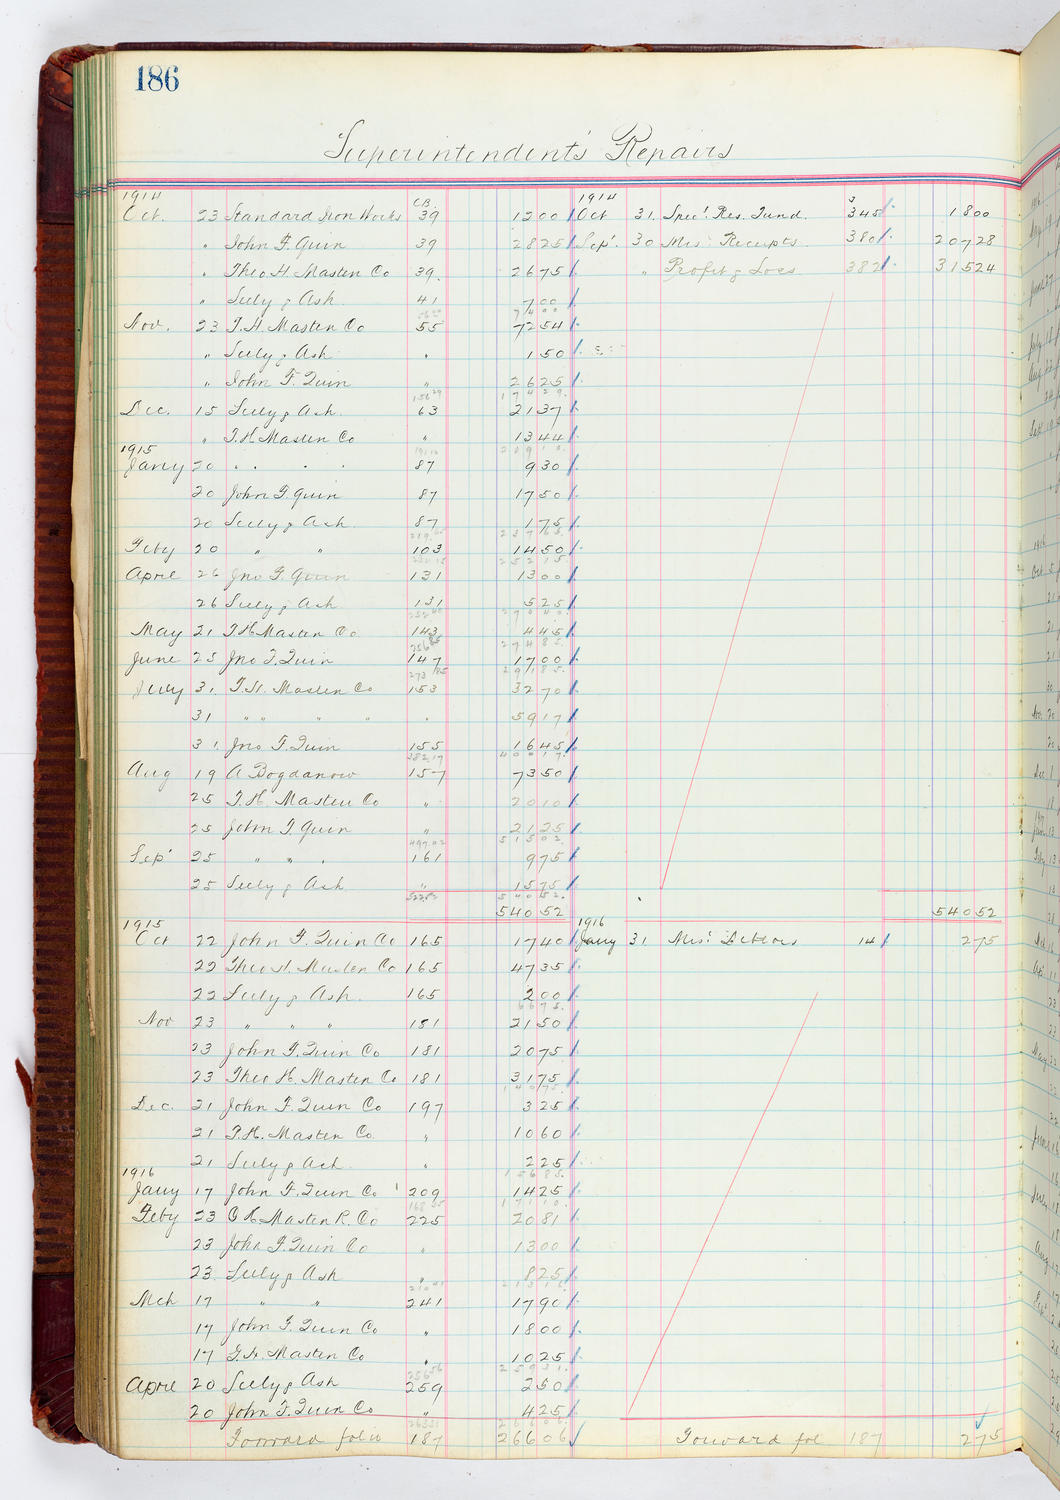 186
Superintendent's Repairs
1914 C.B. 1914
Oct. 23 Standard Iron Works 39 1200 Oct 31. Spec'l Res. Fund. 345 1800
" John F. Quin 39 2825 Sep' 30 Mis' Receipts 380 20728
" Theo H Masten Co 39. 2675 " Profit & Loss 382 31524
" Seely & Ash 41 700
7400
Nov. 23 T. H. Masten Co 55 7254
" Seely & Ash " 150
" John F. Quin " 2625
156 29 17429
Dec. 15 Seely & Ash. 63 2137
" T. H. Masten Co " 1344
1915
Jany 20 " " " " 87 930
20 John F. Quin 87 1750
20 Seely & Ash 87 175
23765
Feby 20 " " 103 1450
25215
April 26 Jno F. Quin 131 1300
26 Seely & Ash 131 525
27040
May 21 T. H. Masten Co 143 445
27485
June 25 Jno F. Quin 147 1700
273 85 29185
July 31. T. H. Masten Co 153 3270
31 " " " " " 5917
31. Jno F. Quin 155 1645
382.17 40017
Aug 19 A Bogdanow 157 7350
25 T. H. Masten Co " 2010
25 John F. Quin " 2125
497.02 51502
Sep' 25 " " " 161 975
25 Seely & Ash " 1575
522.52 54052
54052 54052
1915 1916
Oct 22 John F. Quin Co 165 1740 Jany 31 Mis' Debtors 14 275
22 Theo H. Masten Co 165 4735
22 Seely & Ash. 165 200
6675
Nov 23 " " " 181 2150
23 John F. Quin Co 181 2075
23 Theo H. Masten Co 181 3175
14075
Dec. 21 John F. Quin Co 197 325
21 T. H. Masten Co. " 1060
21 Seely & Ash. " 225
1916 15685
Jany 17 John F. Quin Co 209 1425
168 35 17110
Feby 23 Masten R. Co 225 2081
23 John F. Quin Co " 1300
23. Seely & Ash " 825
21316
Mch 17 " " 241 1790
17 John F. Quin Co " 1800
17 T. H. Masten Co " 1025
256 56 25931
April 20 Seely & Ash 259 250
20 John F. Quin Co " 425
263 31 26606
Forward folio 187 26606 Forward fol 187 275